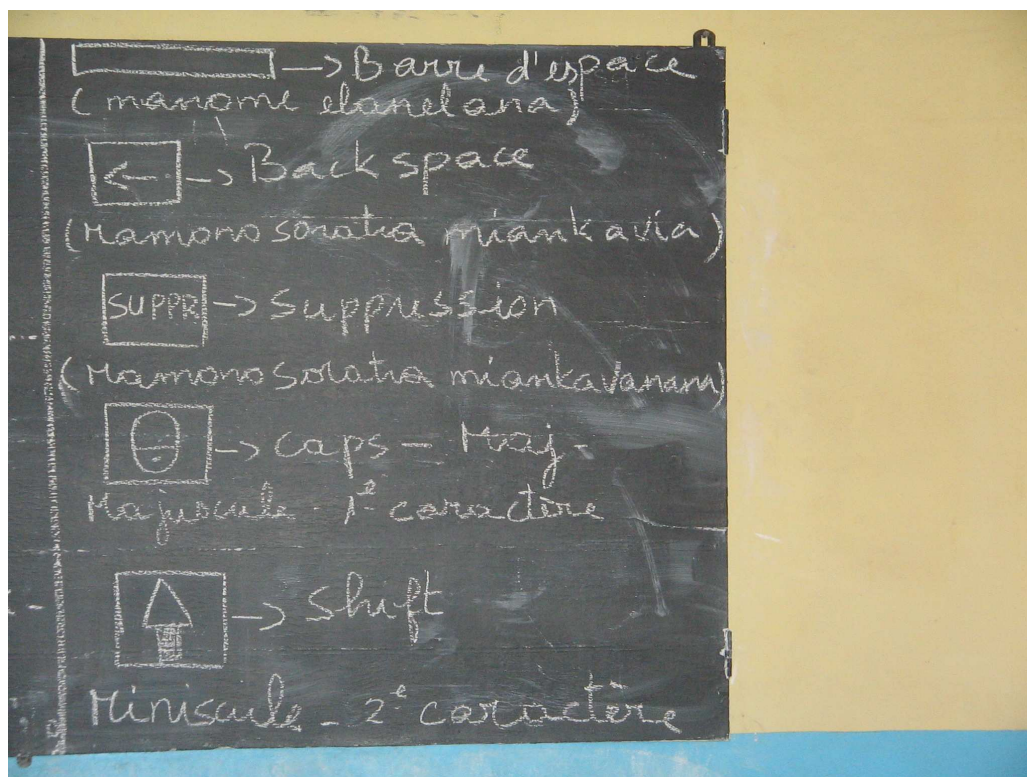 → Barre d'espace
(manome elanelana)
← → Back space
(Mamono soratra miankavia)
SUPPR → Suppression
(Mamono soratra miankavanana)
→ Caps - Maj -
Majuscule - 1e caractère
→ Shift
Miniscule - 2e caractère